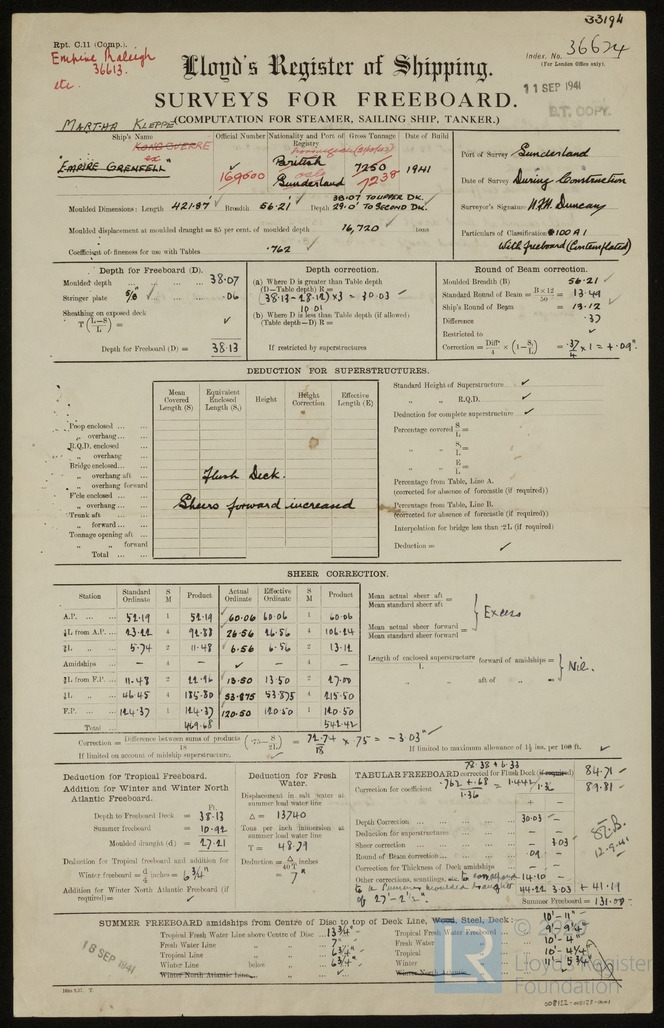 33194
Rpt. C.11 (Comp.).
Empire Raleigh
36613.
etc.
Index. No. 36624
(For London Office only).
Lloyd's Register of Shipping.
11 SEP 1941
B.T. COPY.
SURVEYS FOR FREEBOARD.
(COMPUTATION FOR STEAMER, SAILING SHIP, TANKER.)
MARTHA KLEPPE
Ship's Name
Official Number
Nationality and Port of Registry
Gross Tonnage
Date of Build
KONGSVERRE
ex
"EMPIRE GRENFELL"
169000
British
Oslo
Sunderland
7250
7238
1941
Port of Survey Sunderland
Date of Survey During Construction
Surveyor's Signature W.F.W. Duncan
Particulars of Classification 100 A 1
With freeboard (Contemplated)
Moulded Dimensions: Length 421.87' Breadth 56.21' Depth 38.07 TO UPPER DK.
29.0' TO SECOND DK.
Moulded displacement at moulded draught = 85 per cent. of moulded depth 16,720 tons
Coefficient of fineness for use with Tables .762
Depth for Freeboard (D).
Moulded depth 38.07
Stringer plate .06
Sheathing on exposed deck
T (L-S/L) =
Depth for Freeboard (D) = 38.13
Depth correction.
(a) Where D is greater than Table depth
(D-Table depth) R =
(38.13 - 28.12) x 3 = 30.03
10.01
(b) Where D is less than Table depth (if allowed)
(Table depth-D) R =
If restricted by superstructures
Round of Beam correction.
Moulded Breadth (B) 56.21
Standard Round of Beam = B x 12/50 = 13.49
Ship's Round of Beam = 13.12
Difference .37
Restricted to
Correction = Diff/4 x (1-S/L) = .37/4 x 1 = + .09".
DEDUCTION FOR SUPERSTRUCTURES.
Mean Covered Length (S)
Equivalent Enclosed Length (S₁)
Height
Height Correction
Effective Length (E)
Poop enclosed
„ overhang
R.Q.D. enclosed
„ overhang
Bridge enclosed
„ overhang aft
„ overhang forward
F'cle enclosed
„ overhang
Trunk aft
„ forward
Tonnage opening aft
„ „ forward
Total
Flush Deck.
Sheers forward increased
Standard Height of Superstructure
„ „ R.Q.D.
Deduction for complete superstructure
Percentage covered S/L =
„ „ S₁/L =
„ „ E/L =
Percentage from Table, Line A.
(corrected for absence of forecastle (if required))
Percentage from Table, Line B.
(corrected for absence of forecastle (if required))
Interpolation for bridge less than ·2L (if required)
Deduction =
SHEER CORRECTION.
Station
Standard Ordinate
S M
Product
Actual Ordinate
Effective Ordinate
S M
Product
A.P. 52.19 1 52.19 60.06 60.06 1 60.06
⅙L from A.P. 23.22 4 92.88 26.56 26.56 4 106.24
⅓L „ 5.74 2 11.48 6.56 6.56 2 13.12
Amidships - 4 - - 4 -
⅓L from F.P. 11.48 2 22.96 13.50 13.50 2 27.00
⅙L „ 46.45 4 185.80 53.875 53.875 4 215.50
F.P. 124.37 1 124.37 120.50 120.50 1 120.50
Total 469.68 542.42
Mean actual sheer aft
Mean standard sheer aft =
Mean actual sheer forward
Mean standard sheer forward =
Excess
Length of enclosed superstructure/L forward of amidships =
„ aft of „ =
Nil.
Correction = Difference between sums of products/18 (·75 - S/2L) = 72.74/18 x .75 = - 3.03"
If limited on account of midship superstructure.
If limited to maximum allowance of 1½ ins. per 100 ft.
Deduction for Tropical Freeboard.
Addition for Winter and Winter North Atlantic Freeboard.
Ft.
Depth to Freeboard Deck = 38.13
Summer freeboard = 10.92
Moulded draught (d) = 27.21
Deduction for Tropical freeboard and addition for
Winter freeboard = d/4 inches = 6¾"
Addition for Winter North Atlantic Freeboard (if required) =
Deduction for Fresh Water.
Displacement in salt water at summer load water line
Δ = 13740
Tons per inch immersion at summer load water line
T = 48.79
Deduction = Δ/40T inches
= 7"
78.38 + 6.33
TABULAR FREEBOARD corrected for Flush Deck (if required) 84.71
Correction for coefficient .762 + .68/1.36 = 1.442/1.36 89.81
+ -
Depth Correction 30.03 -
Deduction for superstructures - -
Sheer correction - 3.03
Round of Beam correction .09 -
Correction for Thickness of Deck amidships - -
Other corrections, scantlings, etc to correspond 14.10 -
to a Summer moulded draught 44.22 3.03 + 41.19
of 27'-2½". Summer Freeboard = 131.00
12.9.41
SUMMER FREEBOARD amidships from Centre of Disc to top of Deck Line, Wood, Steel, Deck: 10'-11"
Tropical Fresh Water Line above Centre of Disc 13¾" Tropical Fresh Water Freeboard 9'-9¼"
Fresh Water Line „ „ 7" Fresh Water „ 10'-4"
Tropical Line „ „ 6¾" Tropical „ 10'-4¼"
Winter Line below „ „ 6¾" Winter „ 11'-5¾"
Winter North Atlantic Line „ Winter North Atlantic
18 SEP 1941
LR
© 2020
Lloyd's Register
Foundation
008122-008128-0001